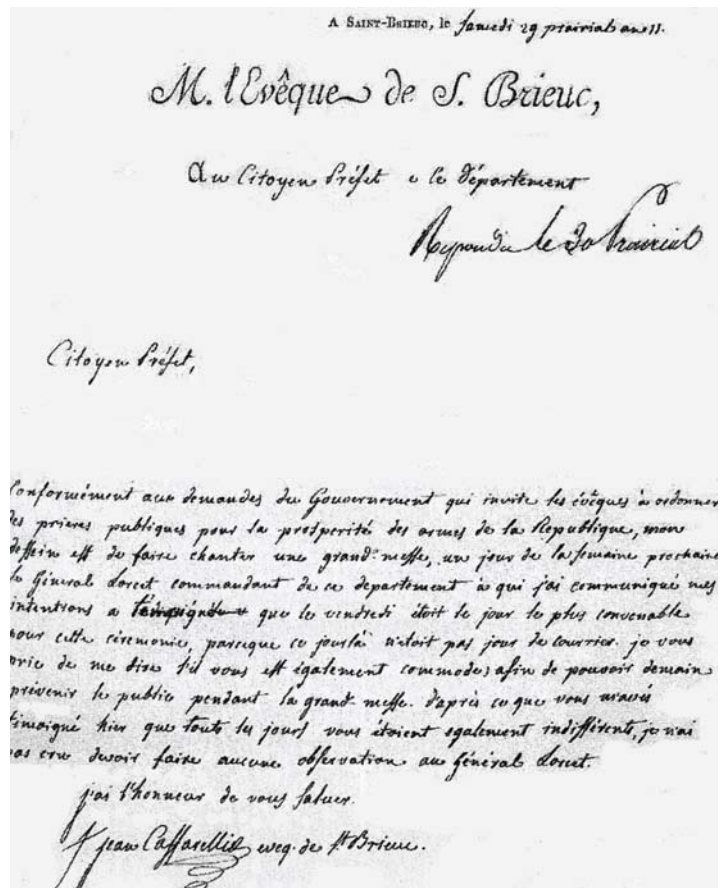 A SAINT-BRIEUC, le Samedi 29 prairial an 11.
M. l'Evêque de S. Brieuc,
Au Citoyen Préfet de ce Département
Repondu le 30 Prairial
Citoyen Préfet,
Conformément aux demandes du Gouvernement qui invite les évêques à ordonner
des prieres publiques pour la prosperité des armes de la Republique, mon
dessein est de faire chanter une grand-messe, un jour de la semaine prochaine
le Général Lorcet commandant de ce departement à qui j'ai communiqué mes
intentions a témoigné que le vendredi étoit le jour le plus convenable
pour cette cérémonie, parceque ce jour là n'etoit pas jour de courrier. je vous
prie de me dire s'il vous est également commode, afin de pouvoir demain
prévenir le public pendant la grand-messe. d'après ce que vous m'avés
témoigné hier que touts les jours vous étoient egalement indifférents, je n'ai
pas cru devoir faire aucune observation au Général Lorcet.
j'ai l'honneur de vous saluer.
† jean Caffarelli eveq. de St Brieuc.